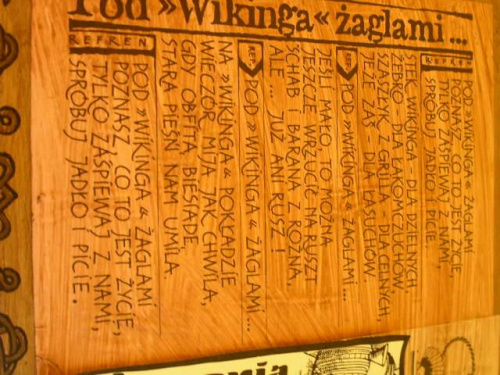 Pod »Wikinga« żaglami ...
REFREN
POD »WIKINGA« ŻAGLAMI
POZNASZ CO TO JEST ŻYCIE,
TYLKO ZAŚPIEWAJ Z NAMI,
SPRÓBUJ JADŁO I PICIE.
STEK WIKINGA - DLA DZIELNYCH
ŻEBRO - DLA ŁAKOMCZUCHÓW
SZASZŁYK Z GRILLA - DLA CELNYCH,
JEŻE ZAŚ - DLA ŁASUCHÓW
REF. POD »WIKINGA« ŻAGLAMI ...
JEŚLI MAŁO TO MOŻNA
JESZCZE WRZUCIĆ NA RUSZT
SCHAB I BARANA Z ROŻNA,
ALE ... JUŻ ANI RUSZ !
REF. POD »WIKINGA« ŻAGLAMI ...
NA »WIKINGA« POKŁADZIE
WIECZÓR MIJA JAK CHWILA,
GDY OBFITĄ BIESIADĘ
STARA PIEŚŃ NAM UMILA.
REFREN
POD »WIKINGA« ŻAGLAMI
POZNASZ CO TO JEST ŻYCIE,
TYLKO ZAŚPIEWAJ Z NAMI,
SPRÓBUJ JADŁO I PICIE.